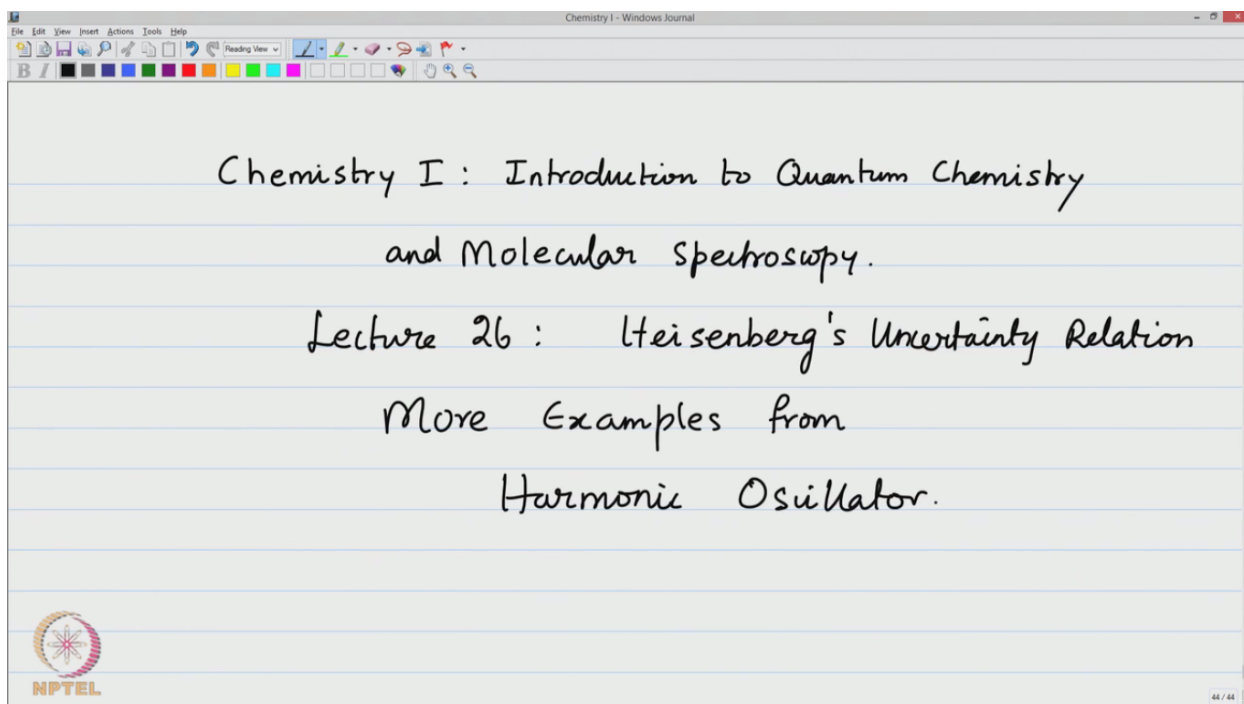 Chemistry I - Windows Journal
File Edit View Insert Actions Tools Help
Reading View
B I
Chemistry I : Introduction to Quantum Chemistry
and Molecular Spectroscopy.
Lecture 26 : Heisenberg's Uncertainty Relation
More Examples from
Harmonic Oscillator.
NPTEL
44 / 44